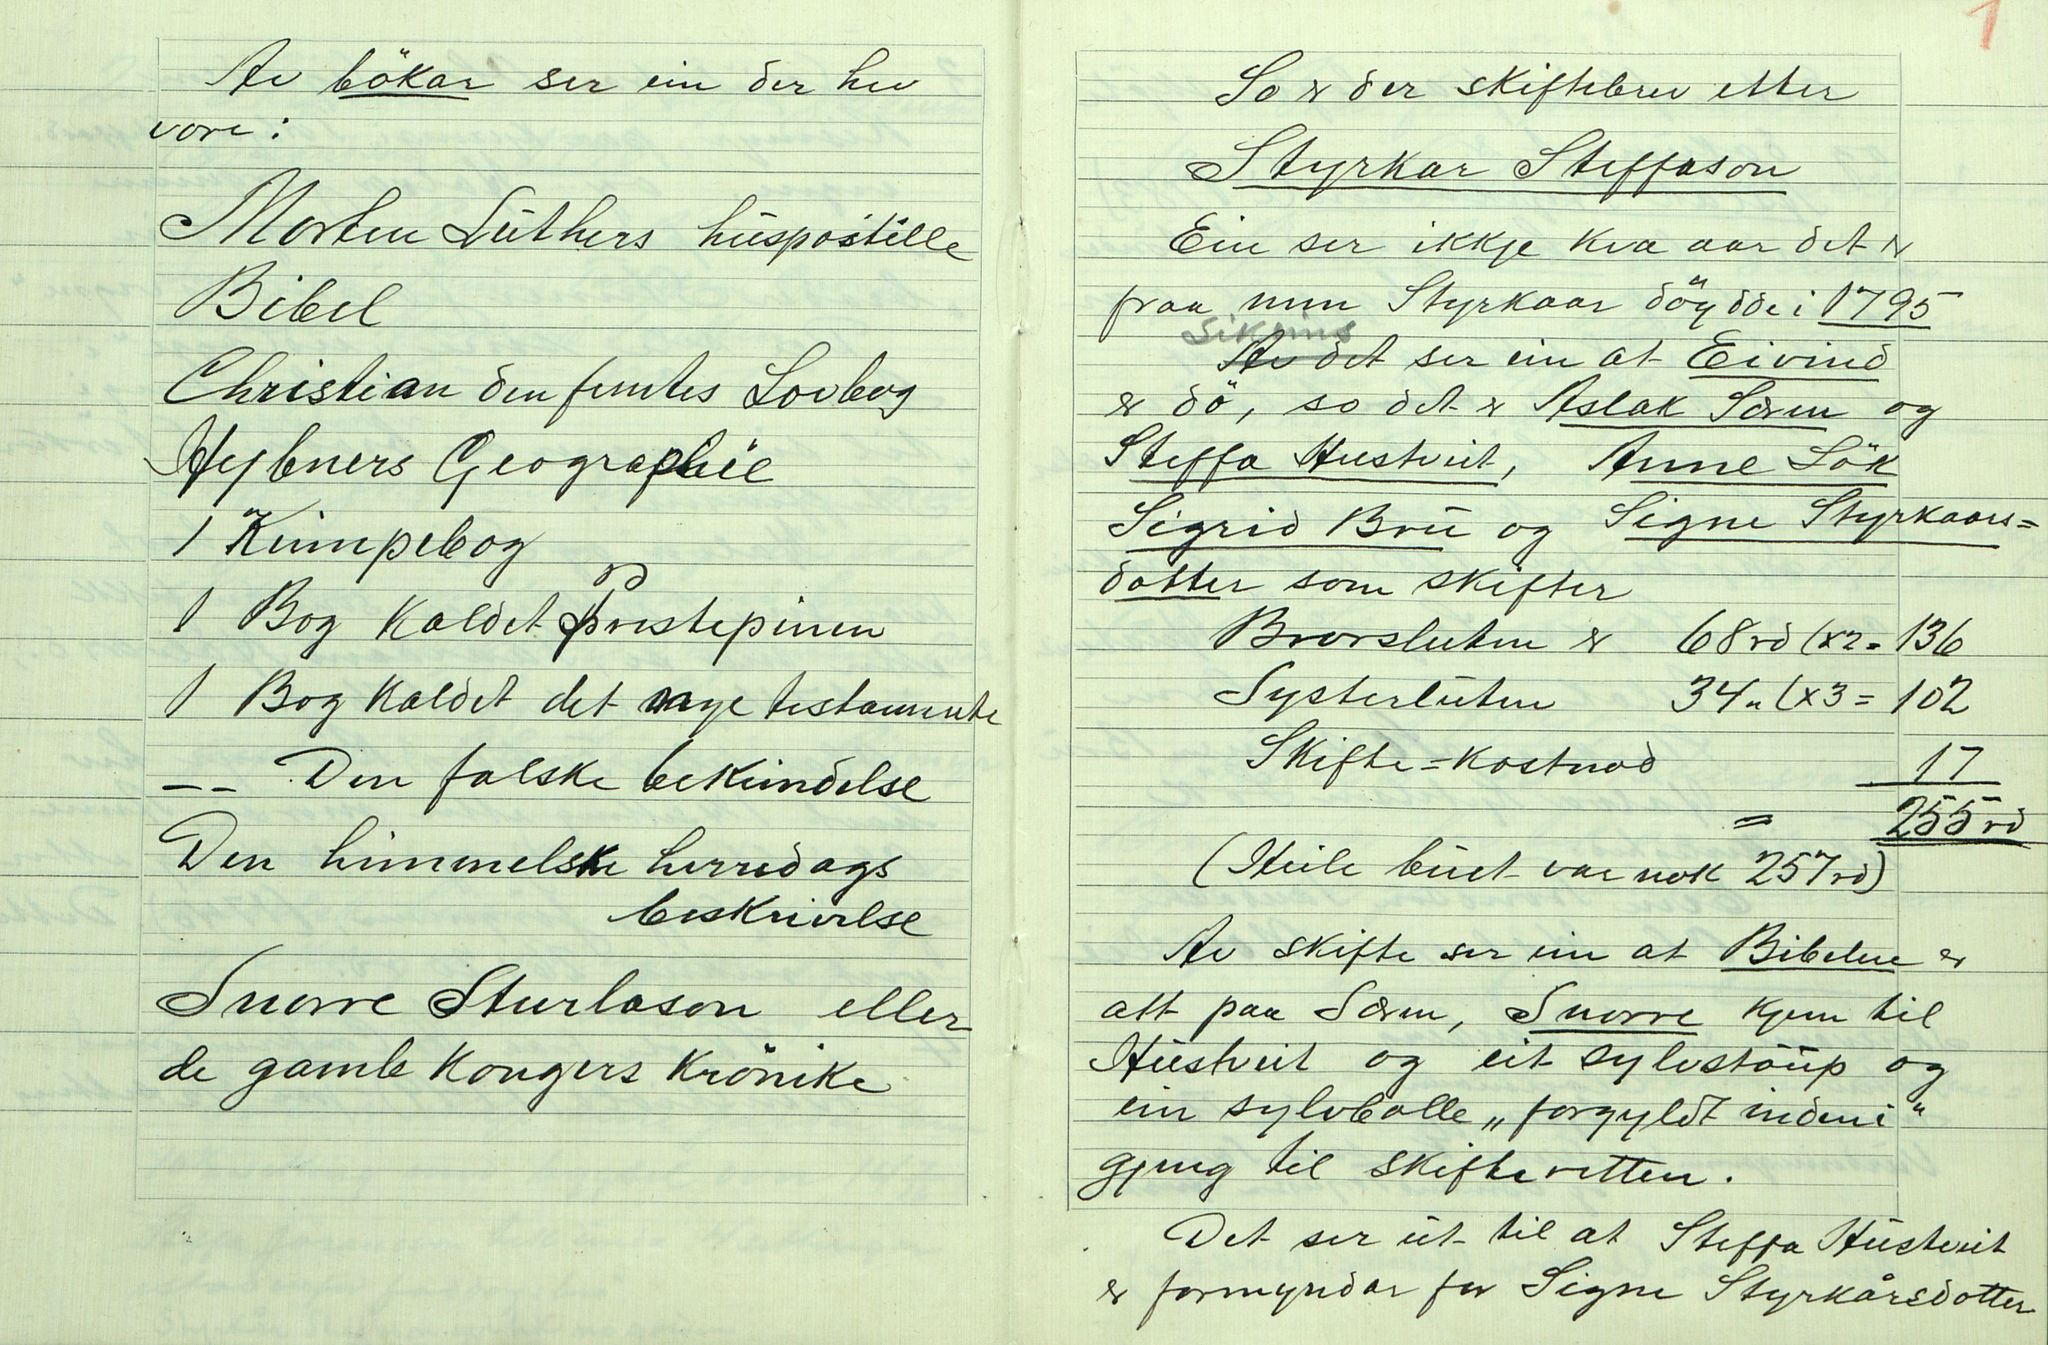 Av bökar ser ein der hev
vore:
Morten Luthers huspostille
Bibel
Christian den femtes Lovbog
Hybners Geographie
1 Kimpebog
1 Bog kaldet prestepinen
1 Bog kaldet det nye testamente
-- Den falske bekiendelse
Den himmelske herredags
beskrivelse
Snorre Sturlason eller
de gamle kongers krönike
1
So er der skiftebrev etter
Styrkar Steffason
Ein ser ikkje kva aar det er
fraa, men Styrkaar döydde i 1795
Av det ser ein at Eivind
er dö, so det er Aslak Sæm og
Steffa Hustveit, Anne Lök
Sigrid Bru og Signe Styrkaars=
dotter som skifter
Brorsluten er 68 rd (x2= 136
Systerluten 34 „ (x3 = 102
Skifte=kostnad 17
= 255 rd
(Heile buet var nok 257 rd)
Av skifte ser ein at Bibelen er
att paa Sæm, Snorre kjem til
Hustveit og eit sylvstaup og
ein sylvbolle „forgyldt indeni"
gjeng til skifteretten.
Det ser ut til at Steffa Hustveit
er formyndar for Signe Styrkårsdotter